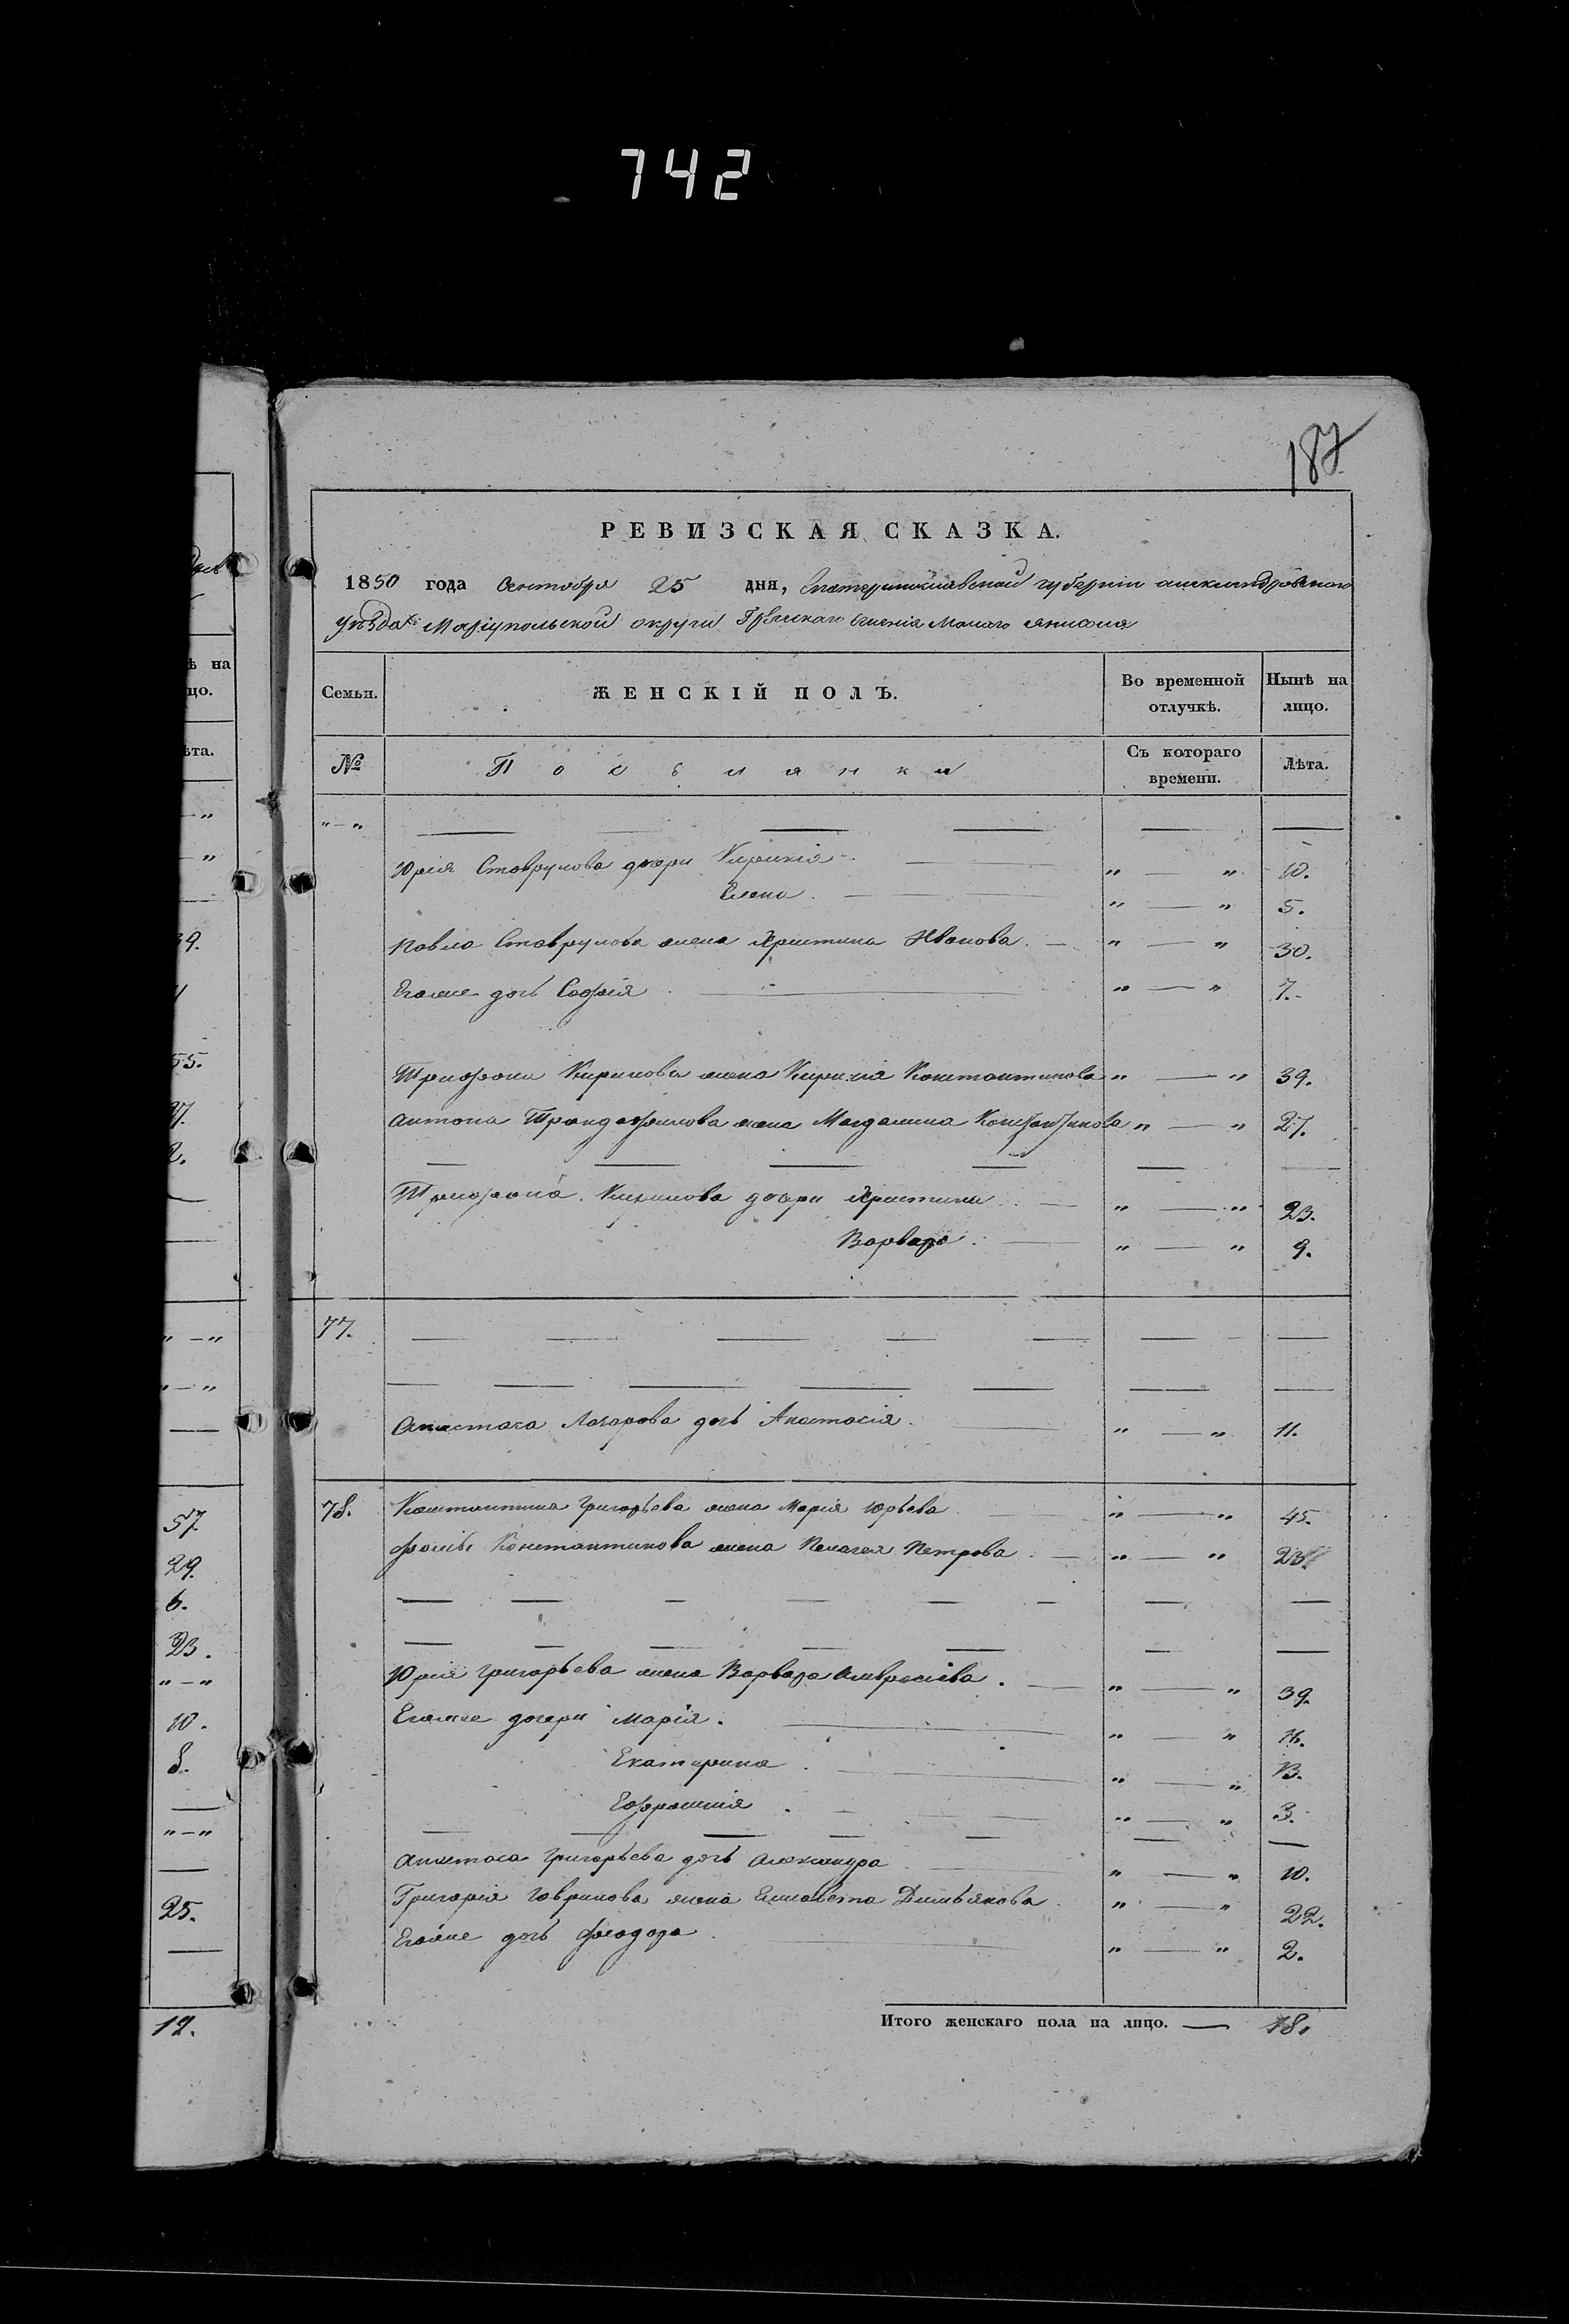 742
187
РЕВИЗСКАЯ СКАЗКА.
1850 года Сентября 25 дня, Екатеринославской губернии Александровскаго
уѣзда Мариупольской округи Греческаго селенія Малаго Янисоля
ѣ на
цо.
Семьи. ЖЕНСКІЙ ПОЛЪ. Во временной отлучкѣ. Нынѣ на лицо.
ѣта.
№ Поселянки Съ котораго времени. Лѣта.
"—"
Юрія Ставрулова дочери Кирикія " — " 10.
Елена " — " 5.
Павла Ставрулова жена Христина Иванова. " — " 30.
Егоже дочь Софія " — " 7.
Трифона Кирилова жена Кирикія Константинова " — " 39.
Антона Трандафилова жена Магдалина Константинова " — " 27.
Трифона Кирилова дочери Христина " — " 23.
Варвара " — " 9.
77.
Анастаса Лазарова дочь Анастасія " — " 11.
78. Константина Григорьева жена Марія Юрьева " — " 45.
Фомы Константинова жена Пелагея Петрова " — " 23.
Юрія Григорьева жена Варвара Амвросіева. " — " 39.
Егоже дочери Марія. " — " 16.
Екатерина " — " 13.
Ефросинія " — " 3.
Анастаса Григорьева дочь Александра " — " 10.
Григорія Гаврилова жена Елисавета Демьянова " — " 22.
Егоже дочь Феодора " — " 2.
Итого женскаго пола на лицо. — 18.
39.
55.
27.
2.
"—"
"—"
57.
29.
6.
23.
"—"
10.
8.
"—"
25.
12.